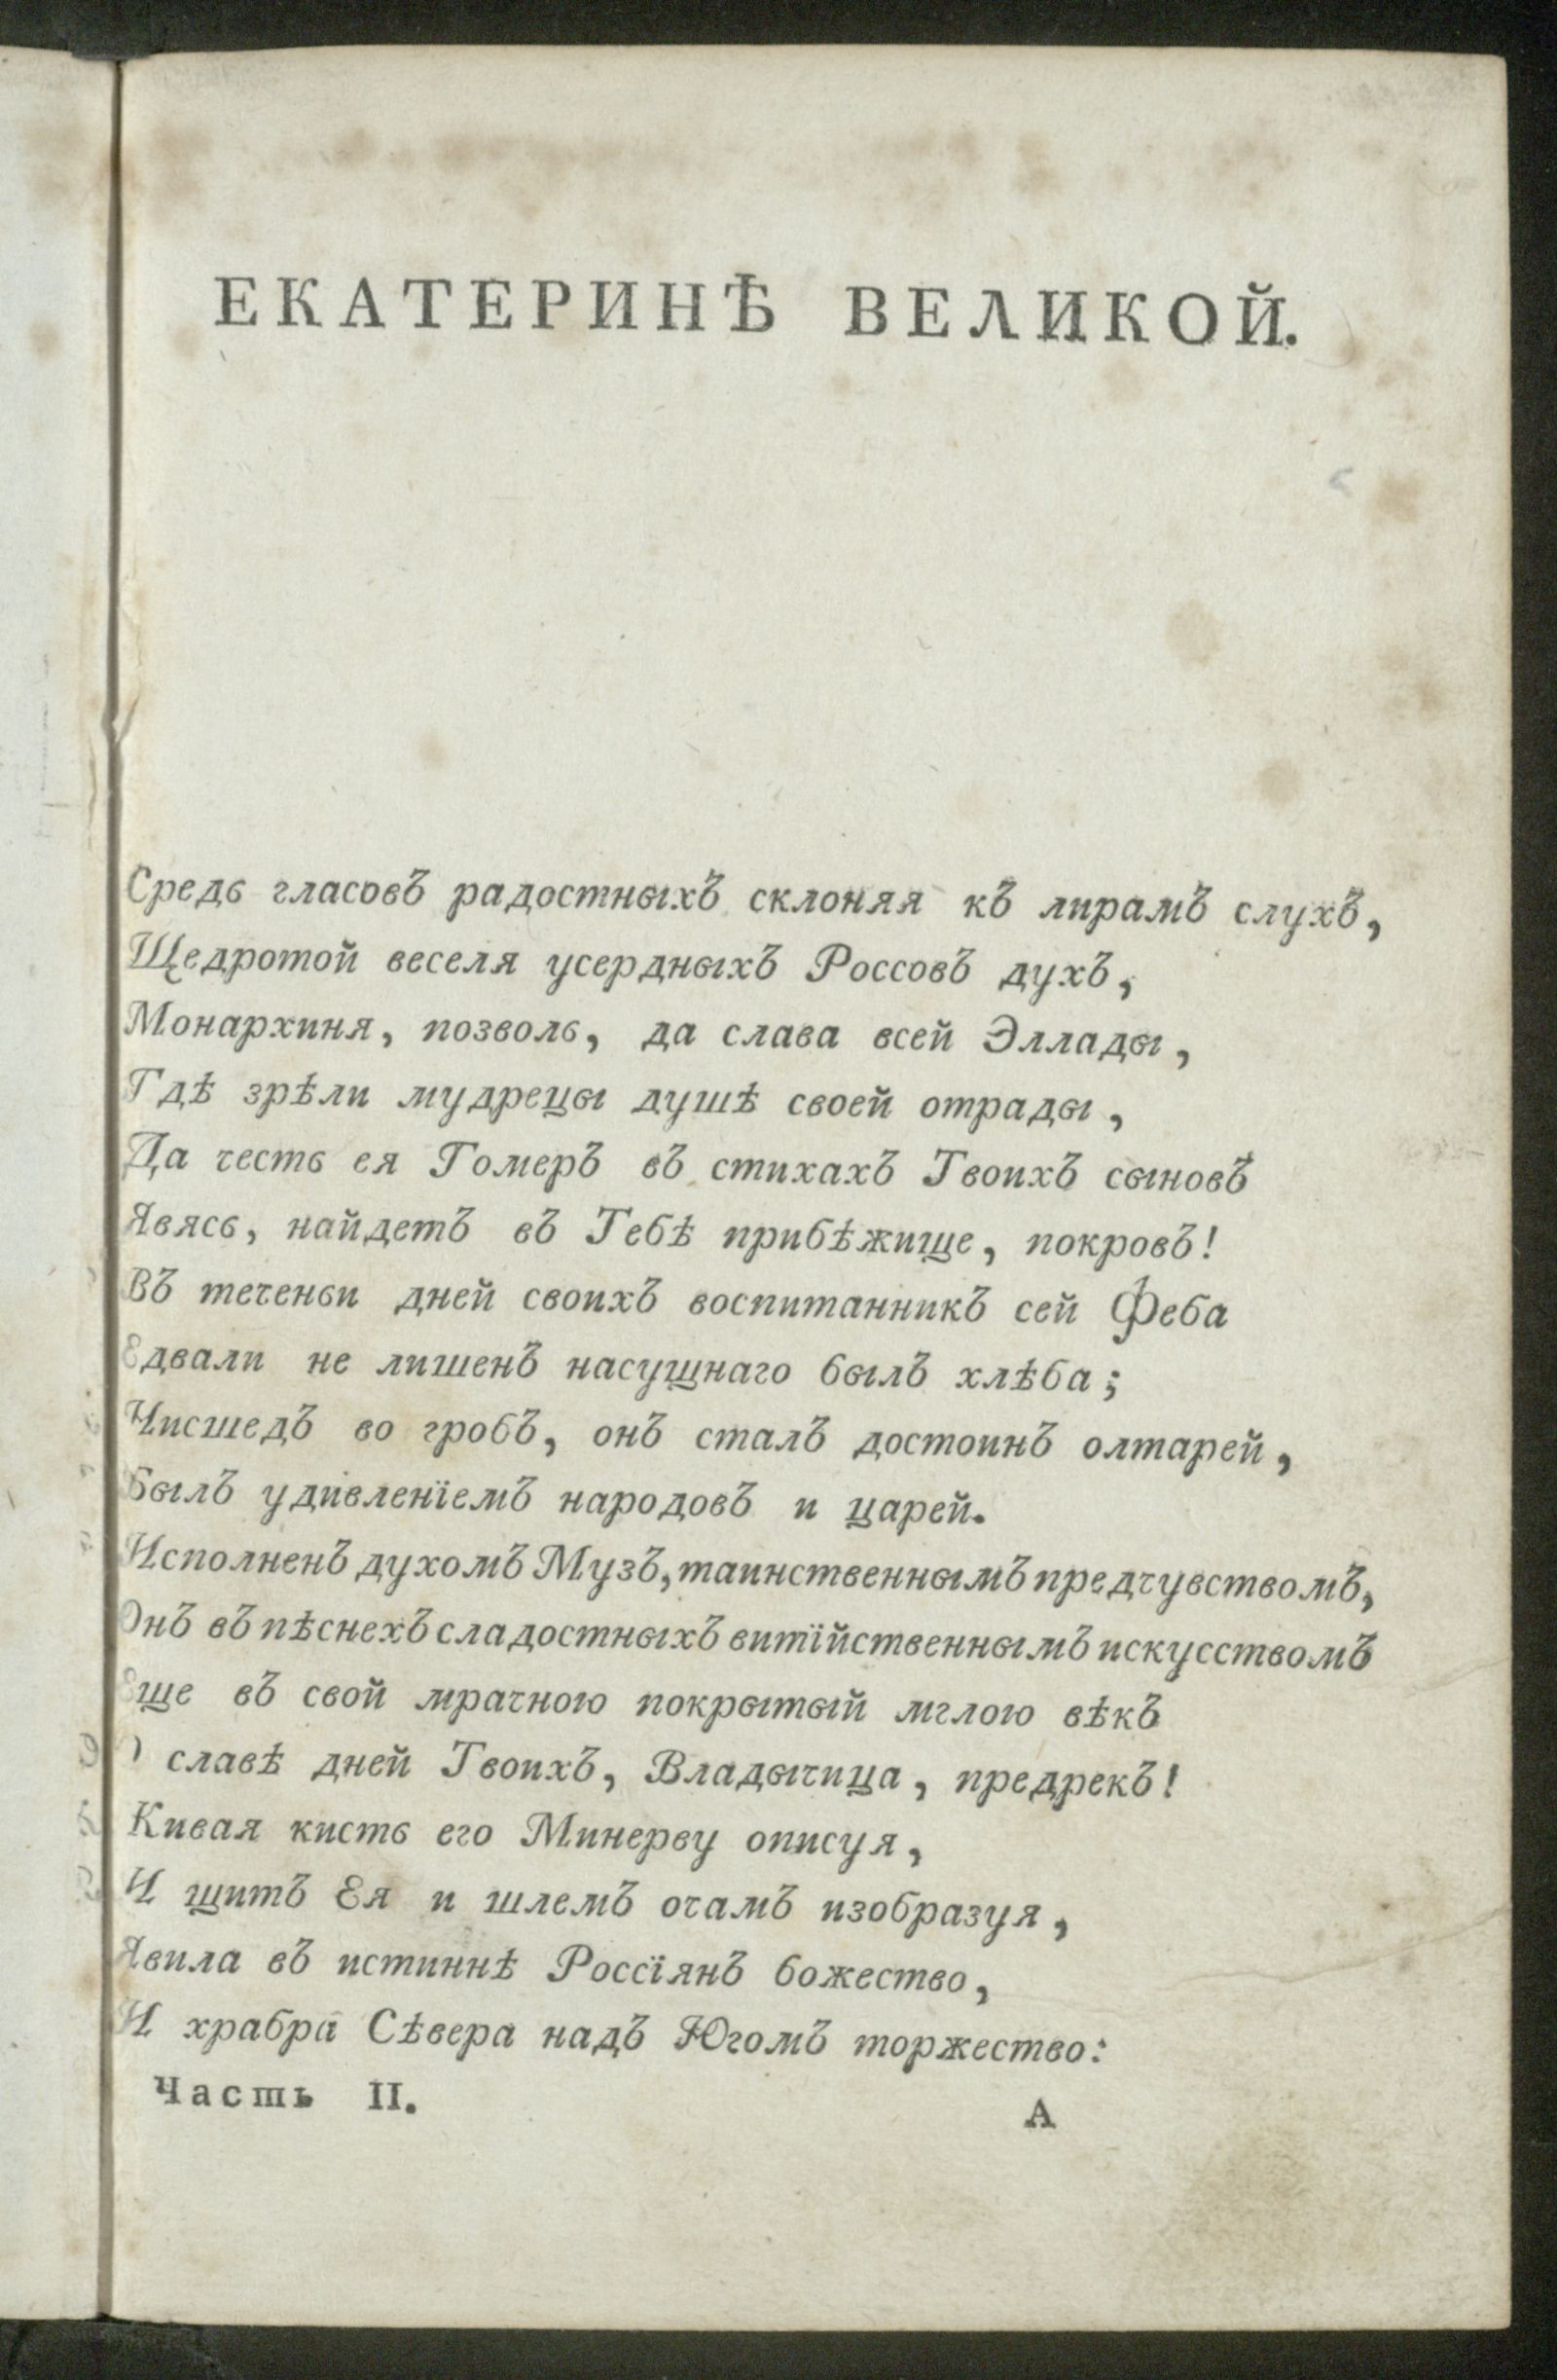 ЕКАТЕРИНѢ ВЕЛИКОЙ.
Средь гласовъ радостныхъ склоняя къ лирамъ слухъ,
Щедротой веселя усердныхъ Россовъ духъ,
Монархиня, позволь, да слава всей Эллады,
Гдѣ зрѣли мудрецы душѣ своей отрады,
Да честь ея Гомеръ въ стихахъ Твоихъ сыновъ
Явясь, найдетъ въ Тебѣ прибѣжище, покровъ!
Въ теченьи дней своихъ воспитанникъ сей Феба
Едвали не лишенъ насущнаго былъ хлѣба;
Нисшедъ во гробъ, онъ сталъ достоинъ олтарей,
Былъ удивленїемъ народовъ и царей.
Исполненъ духомъ Музъ, таинственнымъ предчувствомъ,
Онъ въ пѣснехъ сладостныхъ витїйственнымъ искусствомъ
Еще въ свой мрачною покрытый мглою вѣкъ
О славѣ дней Твоихъ, Владычица, предрекъ!
Живая кисть его Минерву описуя,
И щитъ Ея и шлемъ очамъ изобразуя,
Явила въ истиннѣ Россїянъ божество,
И храбра Сѣвера надъ Югомъ торжество:
Часть II. А